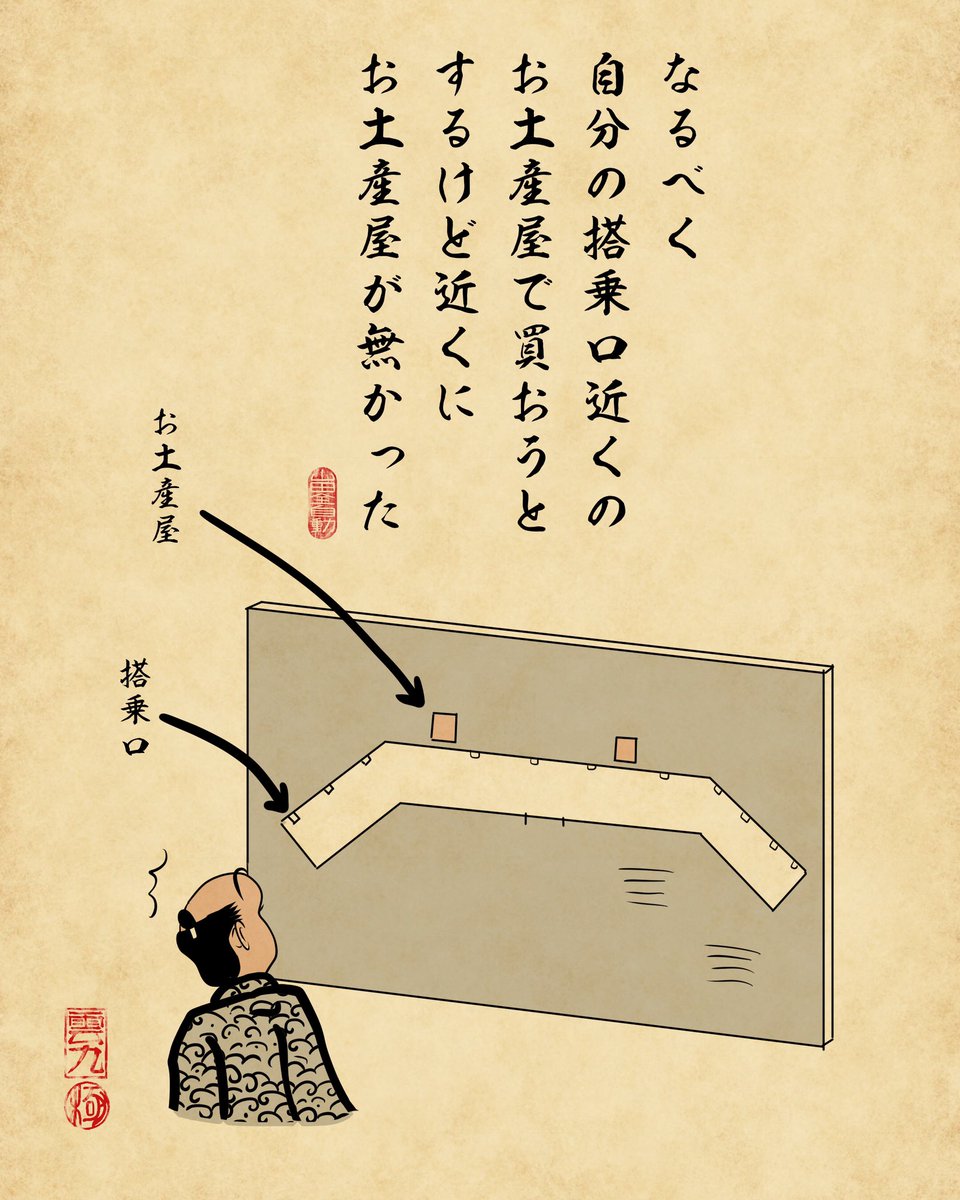 なるべく
自分の搭乗口近くの
お土産屋で買おうと
するけど近くに
お土産屋が無かった
お土産屋
搭乗口